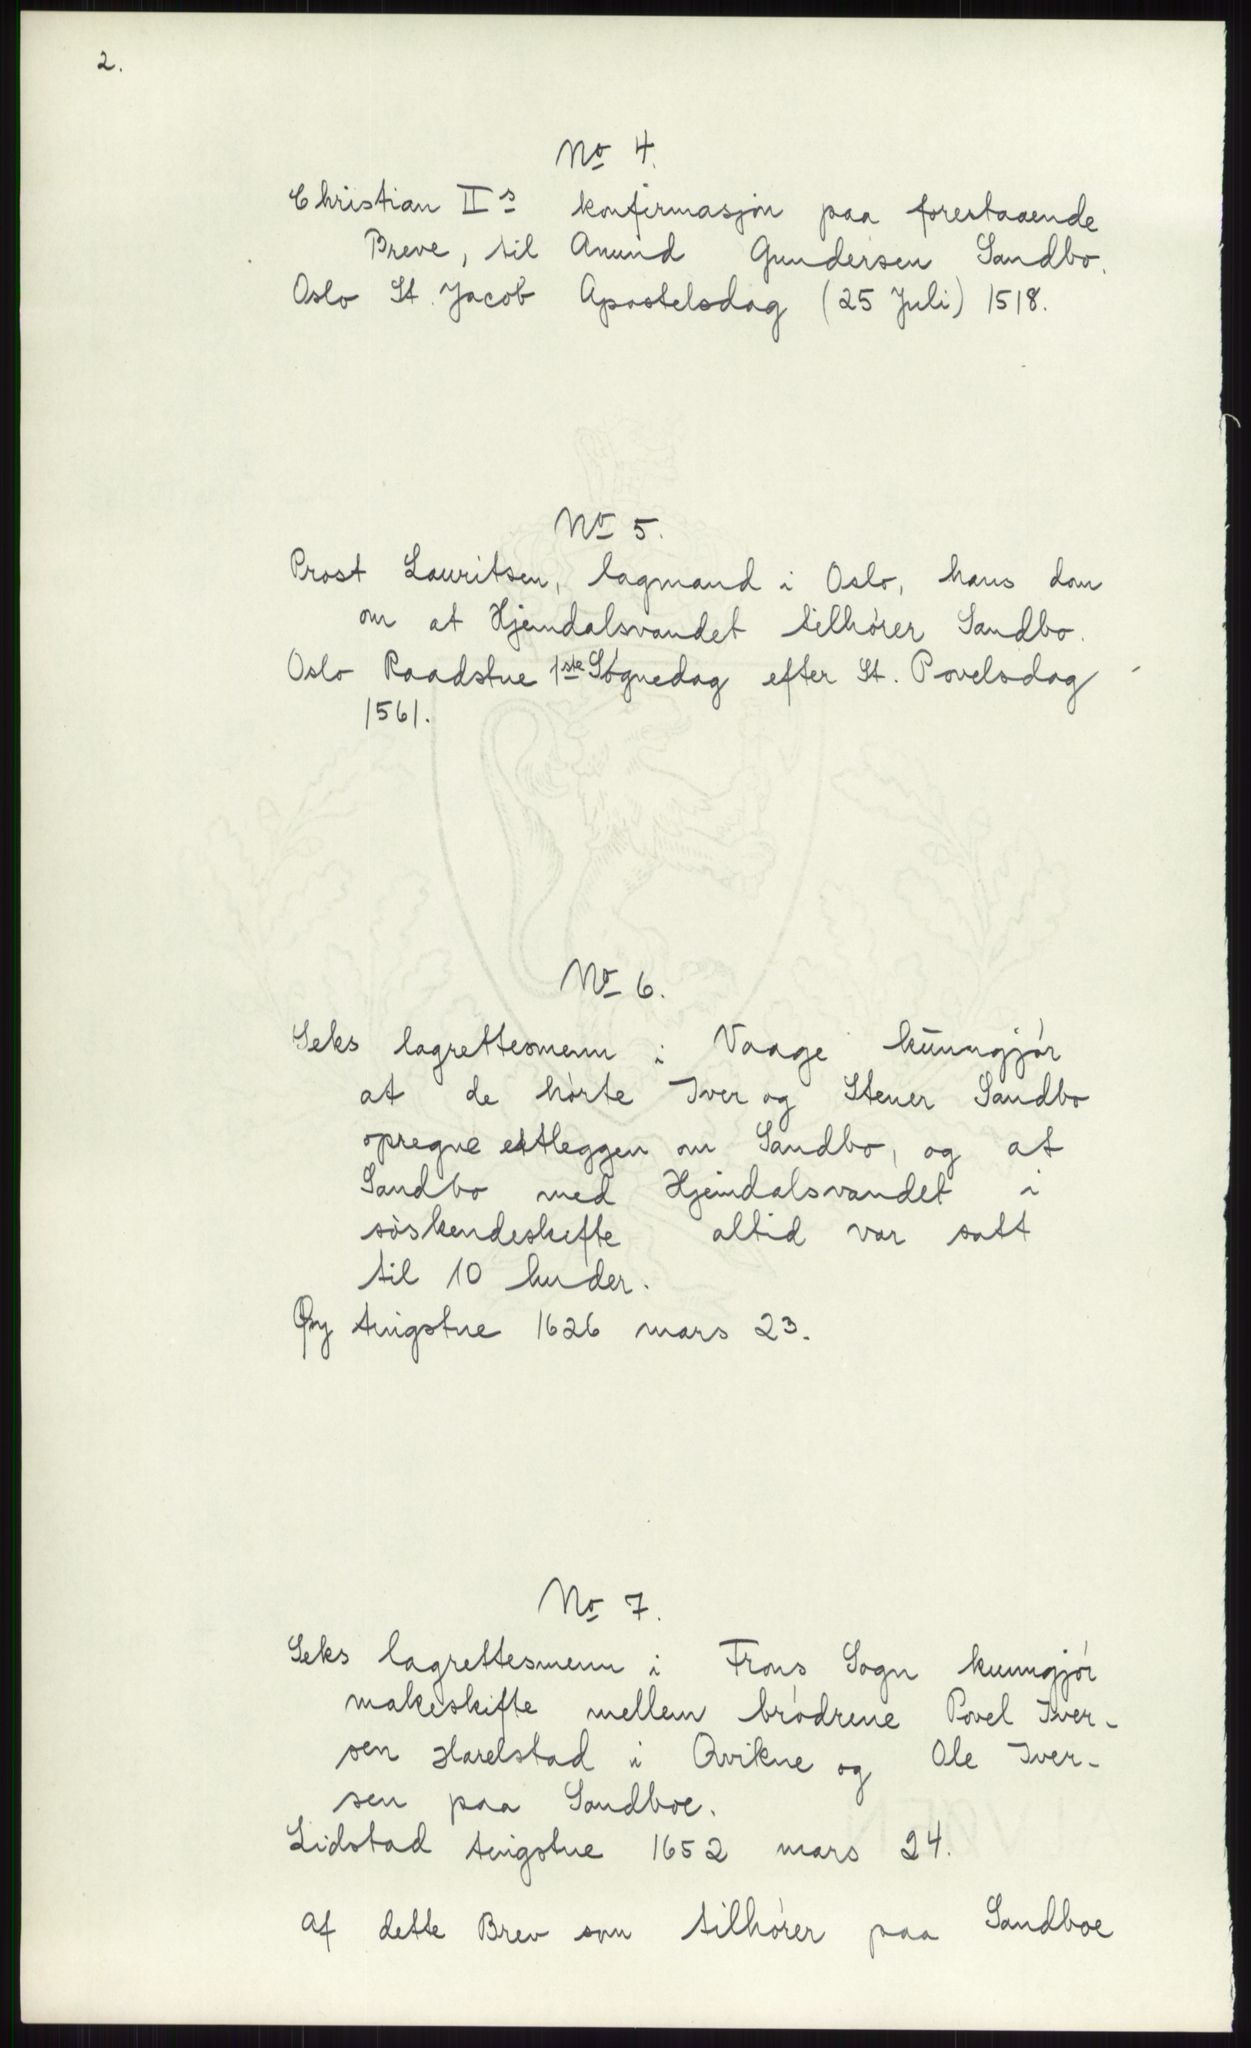 2.
No 4.
Christian IIs konfirmasjon paa forestaaende
Breve, til Anund Gundersen Sandbo.
Oslo St. Jacob Apostelsdag (25 Juli) 1518.
No 5.
Prost Lauritsen, lagmand i Oslo, hans dom
om at Hjemdalsvandet tilhører Sandbo.
Oslo Raadstue 1ste Søgnedag efter St. Povelsdag
1561.
No 6.
Seks lagrettesmenn i Vaage kunngjør
at de hørte Iver og Stener Sandbo
opregne ettleggen om Sandbo, og at
Sandbo med Hjemdalsvandet i
søskendeskifte altid var satt
til 10 huder.
tingstue 1626 mars 23.
No 7.
Seks lagrettesmenn i Frons Sogn kunngjør
makeskifte mellem brødrene Povel Iver-
sen Harelstad i Qvikne og Ole Iver-
sen paa Sandboe.
Lidstad tingstue 1652 mars 24.
Af dette Brev som tilhører paa Sandboe